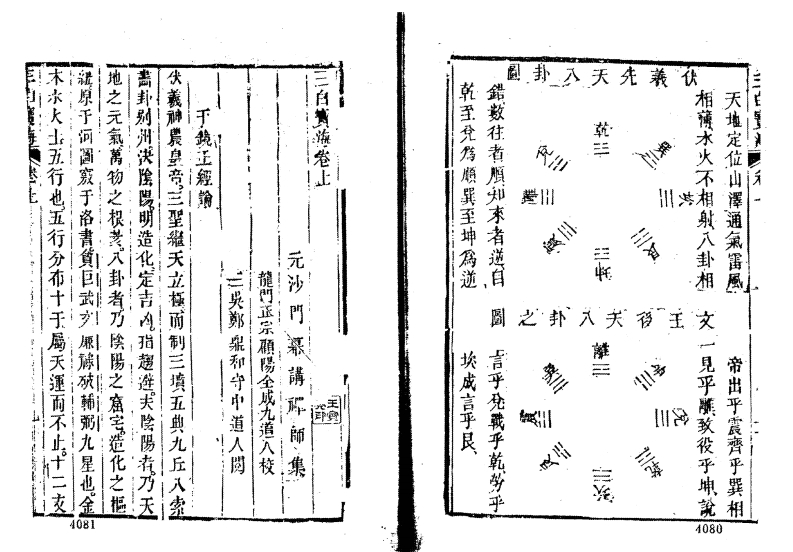 伏羲先天八卦圖
天地定位山澤通氣雷風
相薄水火不相射八卦相
錯數往者順知來者逆自
乾至兌為順巽至坤為逆
乾
兌
巽
坎
艮
坤
文王後天八卦之圖
帝出乎震齊乎巽相
見乎離致役乎坤說
言乎兌戰乎乾勞乎
坎成言乎艮
離
巽
兌
乾
坎
艮
4080
三白寶海卷上
元沙門幕講禪師集
龍門正宗顧陽全成九道人校
三吳鄭鼎和守中道人閱
玉鏡正經論
伏羲神農皇帝三聖繼天立極而制三墳五典九丘八索
畫卦別州決陰陽明造化定吉凶指趨避夫陰陽者乃天
地之元氣萬物之根蒂八卦者乃陰陽之窟宅造化之樞
紐原于河圖竅于洛書貪巨武文廉祿破輔弼九星也金
木水火土五行也五行分布十干屬天運而不止十二支
三白寶海 卷上
4081